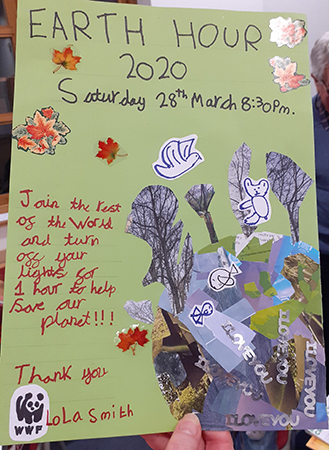 EARTH HOUR
2020
Saturday 28th March 8:30pm.
Join the rest
of the World
and turn
off your
lights for
1 hour to help
Save our
planet!!!
Thank you
LoLa Smith
WWF
I LOVE YOU
I LOVE YOU
I LOVE YOU
I LOVE YOU